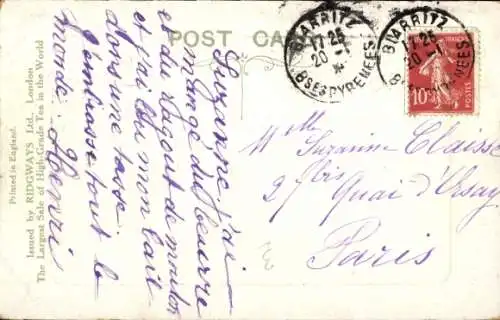 POST CARD
BIARRITZ
17 25
20 -1
BSES PYRENEES
BIARRITZ
17 25
20 -1
10c
POSTES
Suzanne j'ai
mangé du beurre
et du Ragout de mouton
et j'ai bu mon lait
dans une tasse
J'embrasse tout le
monde. Henri
Melle Suzanne Claisse
27 bis Quai d'Orsay
Paris
Issued by RIDGWAYS Ltd., London
The Largest Sale of High-Grade Tea in the World
Printed in England.